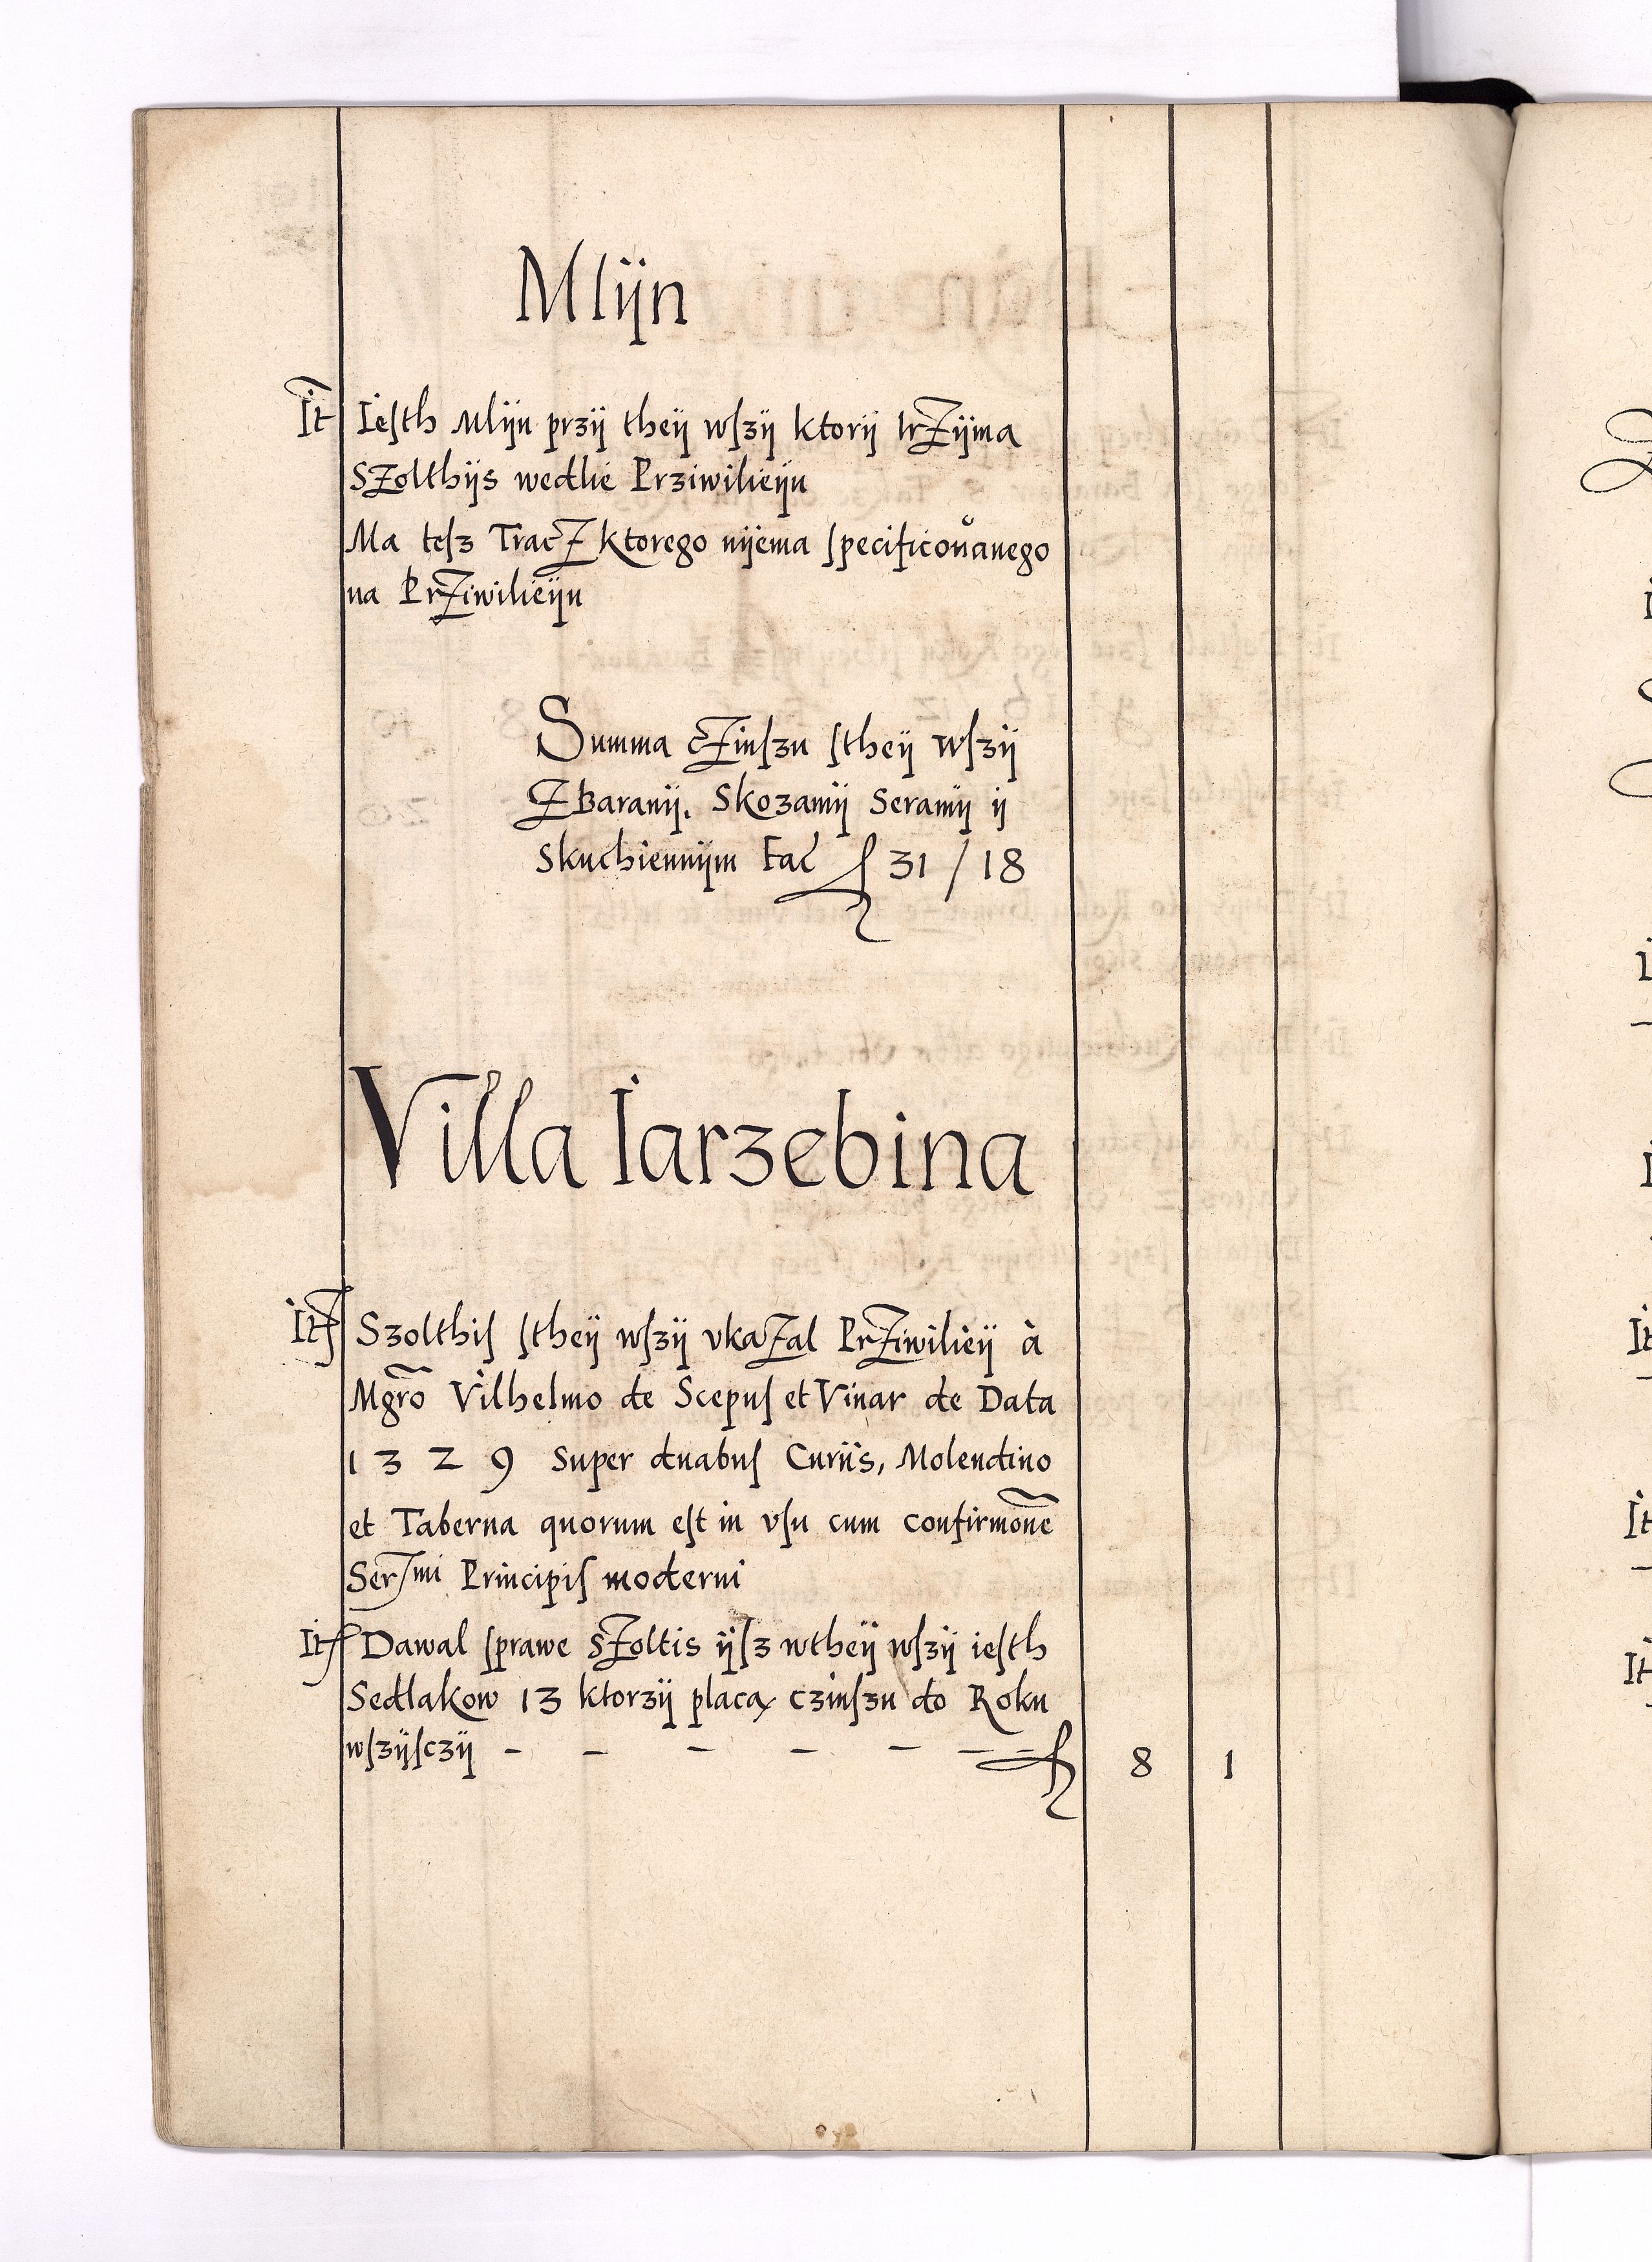 Mlÿn
It Iesth Mlÿn przÿ theÿ wſzÿ ktorÿ trzÿma
Szolthÿs wedlie Prziwilieÿu
Ma teſz Tracz ktorego nÿema ſpecificowanego
na Prziwilieÿu
Summa czinſzu ſtheÿ wſzÿ
zBaranÿ. Skozamÿ Seramÿ ÿ
Skuchiennÿm Fac ƒ 31 / 18
Villa Iarzebina
It Szolthiſ ſtheÿ wſzÿ vkazal Prziwilieÿ à
Mgrõ Vilhelmo de Scepuſ et Vinar de Data
1329 Super duabuſ Curiis, Molendino
et Taberna quorum eſt in vſu cum confirmõne
Serſmi Principiſ moderni
It Dawal ſprawe Szoltis ÿſz wtheÿ wſzÿ ieſth
Sedlakow 13 ktorzÿ placą czinſzu do Roku
wſzÿſczÿ - - - - - - - ƒ 8 1